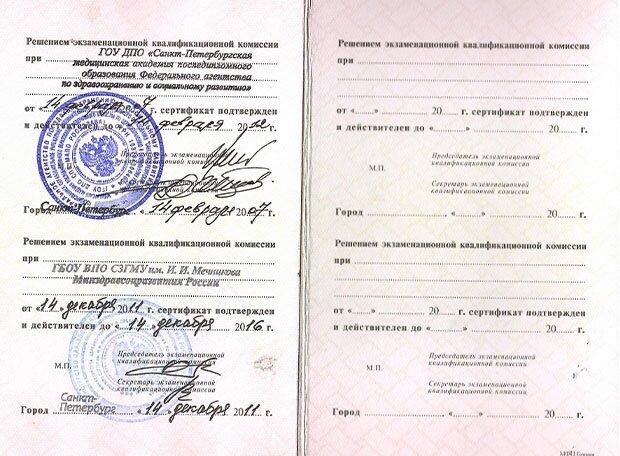 Решением экзаменационной квалификационной комиссии
при ГОУ ДПО «Санкт-Петербургская
медицинская академия последипломного
образования Федерального агентства
по здравоохранению и социальному развитию»
от « 14 07 сертификат подтвержден
и действителен до февраля 20
Председатель экзаменационной
квалификационной комиссии
Санкт-Петербург
Город « 14 февраля 2007 г.
Решением экзаменационной квалификационной комиссии
при
ГБОУ ВПО СЗГМУ им. И. И. Мечникова
Минздравсоцразвития России
от «14» декабря 2011 г. сертификат подтвержден
и действителен до «14» декабря 2016 г.
Председатель экзаменационной
квалификационной комиссии
М.П.
Секретарь экзаменационной
квалификационной комиссии
Санкт-
Петербург
Город «14» декабря 2011 г.
Решением экзаменационной квалификационной комиссии
при
от «......» 20...... г. сертификат подтвержден
и действителен до «......» 20...... г.
Председатель экзаменационной
квалификационной комиссии
М.П.
Секретарь экзаменационной
квалификационной комиссии
Город «......» 20...... г.
Решением экзаменационной квалификационной комиссии
при
от «......» 20...... г. сертификат подтвержден
и действителен до «......» 20...... г.
Председатель экзаменационной
квалификационной комиссии
М.П.
Секретарь экзаменационной
квалификационной комиссии
Город «......» 20...... г.